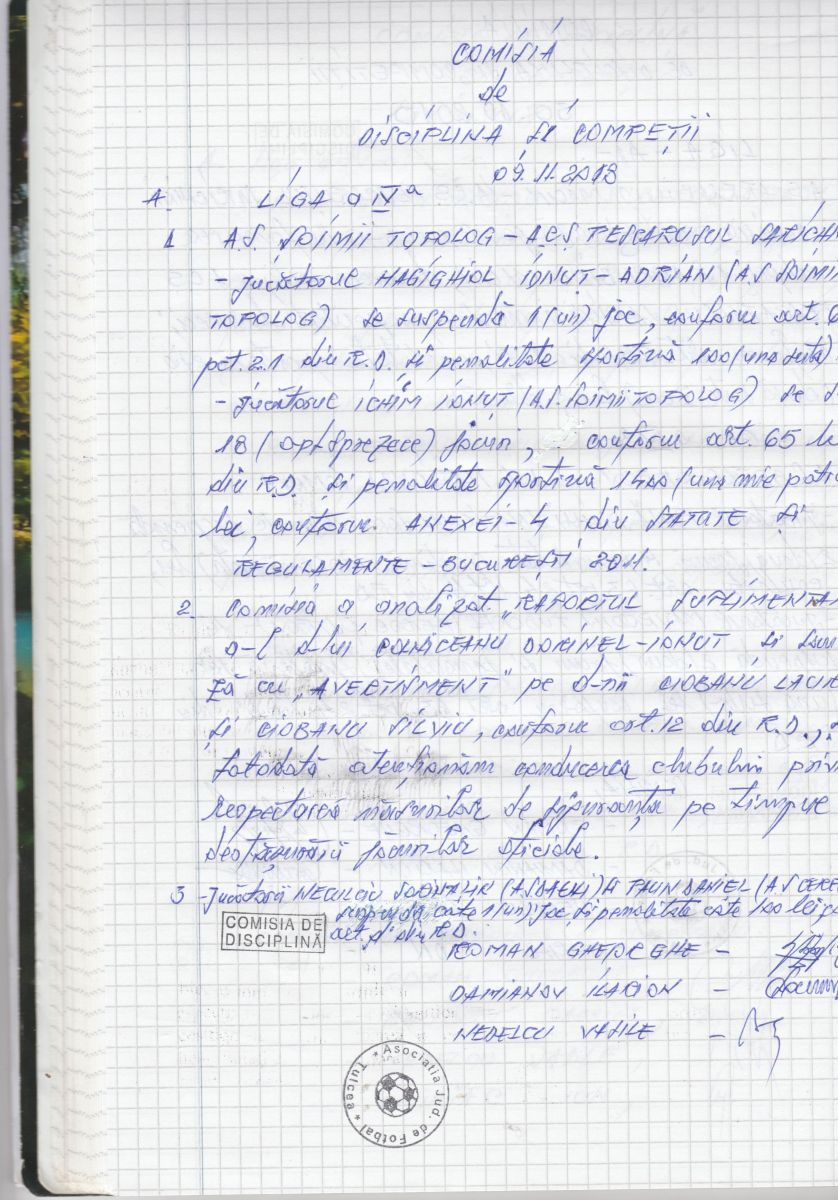 COMISIA
de
DISCIPLINA și COMPEȚII
09.11.2018
A. LIGA a IV a
1 A.S. ȘOIMII TOPOLOG – A.C.S. PESCARUSUL SARICH
– jucătorul HAGIGHIOL IONUT – ADRIAN (A.S ȘOIMI
TOPOLOG) se suspendă 1(un) joc, conform art. 6
pct. 2.1 din R.D. și penalitate sportivă 100 (una suta)
– jucătorul ICHIM IONUT (A.S. ȘOIMII TOPOLOG) se s
18 (optsprezece) jocuri, conform art. 65
din R.D. și penalitate sportivă 1400 (una mie patru
lei, conform ANEXEI – 4 din STATUTE și
REGULAMENTE – BUCURESTI 2011.
2. Comisia a analizat „RAPORTUL SUPLIMENTA
a-l d-lui DORINEL – IONUT și
ză cu „AVERTISMENT" pe d-nii CIOBANU LAUR
și CIOBANU SILVIU, conform art. 12 din R.D.,
totodată atenționăm conducerea clubului priv
respectarea măsurilor de siguranță pe timpul
desfășurării jocurilor oficiale.
3 – Jucătorii NECULCIU și PAUN DANIEL (A S CERE
suspendă câte 1(un) joc și penalitate câte 100 lei
art. din R.D.
COMISIA DE
DISCIPLINĂ
ROMAN GHEORGHE –
DAMIANOV ILARION –
NEDELCU VASILE –
Asociatia Jud. de Fotbal * Tulcea *